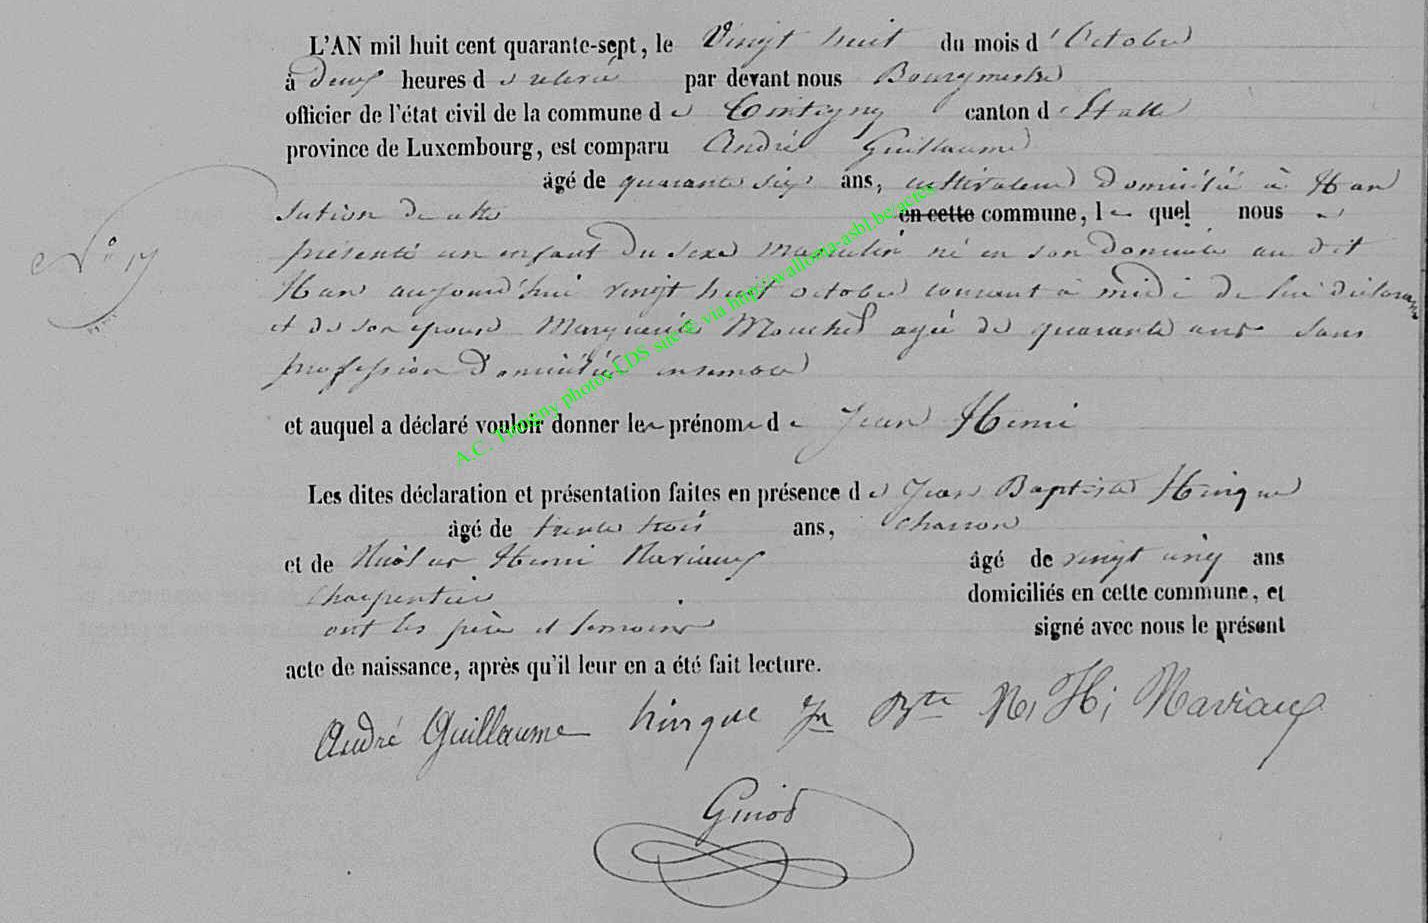 L'AN mil huit cent quarante-sept, le Vingt huit du mois d'Octobre
à Deux heures de relevé par devant nous Bourgmestre
officier de l'état civil de la commune de Tintigny canton d'Etalle
province de Luxembourg, est comparu André Guillaume
âgé de quarante six ans, cultivateur domicilié à Han
section de cette en cette commune, lequel nous a
présenté un enfant du sexe masculin né en son domicile au dit
Han aujourd'hui vingt huit octobre courant à midi de lui déclarant
et de son épouse Marguerite Mouchet agée de quarante ans sans
profession domiciliés ensemble
N° 17
et auquel a déclaré vouloir donner les prénoms de Jean Henri
Les dites déclaration et présentation faites en présence de Jean Baptiste Hinque
âgé de trente trois ans, charron
et de Nicolas Henri Naviaux âgé de vingt cinq ans
Charpentier domiciliés en cette commune, et
ont les père et temoins signé avec nous le présent
acte de naissance, après qu'il leur en a été fait lecture.
André Guillaume hinque Jn Bte N, H, Naviaux
Ginod
A.C. Tintigny photos LDS site © via http://wallonia-asbl.be/actes